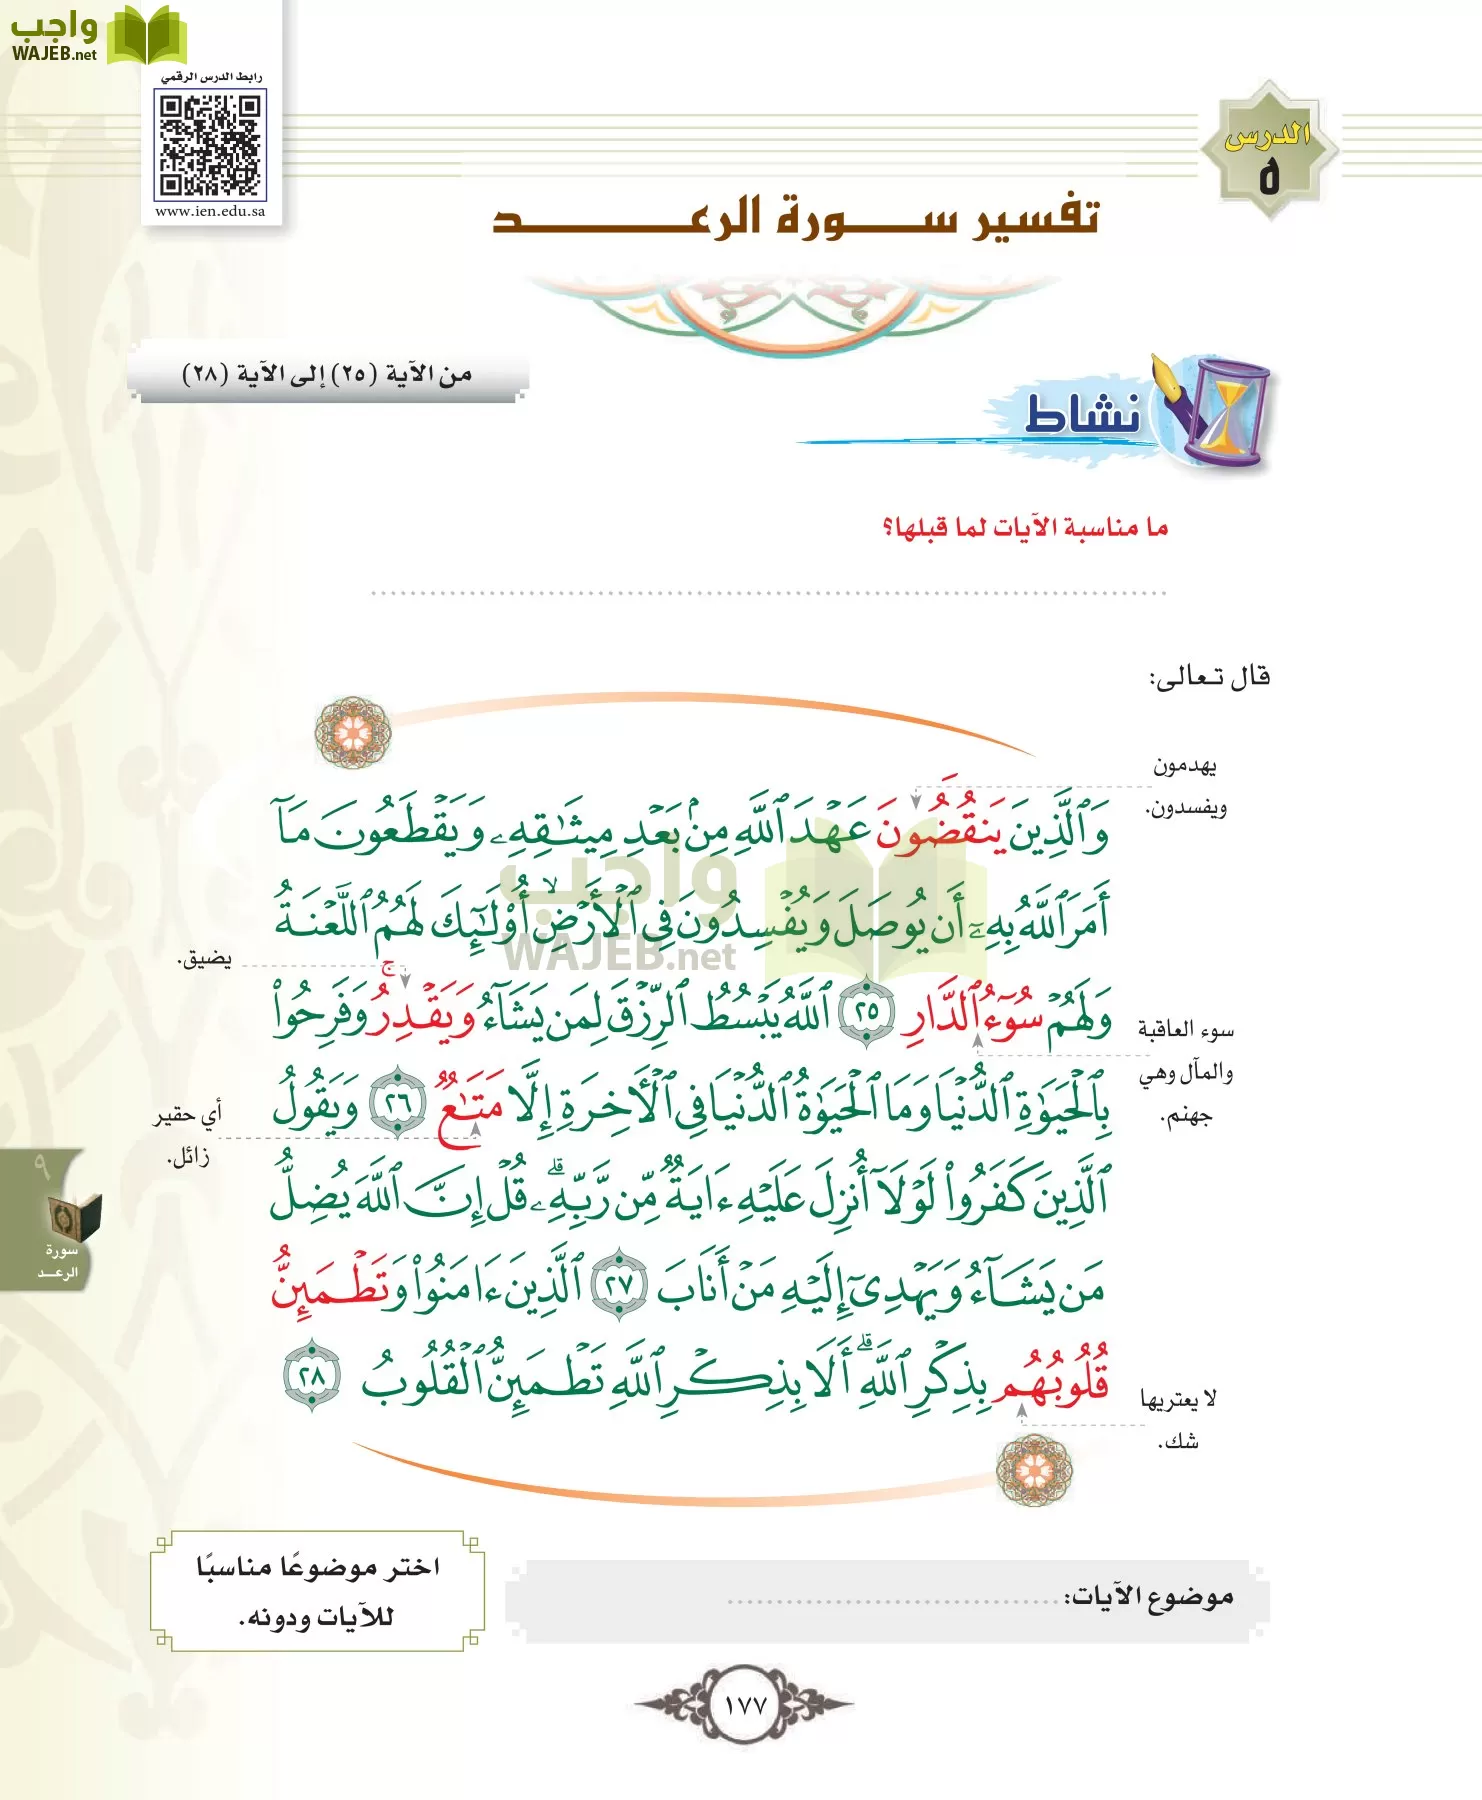 واجب
WAJEB.net
رابط الدرس الرقمي
www.ien.edu.sa
الدرس
٥
تفسير سورة الرعد
من الآية (٢٥) إلى الآية (٢٨)
نشاط
ما مناسبة الآيات لما قبلها؟
قال تعالى:
يهدمون
ويفسدون.
وَٱلَّذِينَ يَنقُضُونَ عَهْدَ ٱللَّهِ مِنۢ بَعْدِ مِيثَٰقِهِۦ وَيَقْطَعُونَ مَآ
أَمَرَ ٱللَّهُ بِهِۦٓ أَن يُوصَلَ وَيُفْسِدُونَ فِى ٱلْأَرْضِ ۙ أُو۟لَٰٓئِكَ لَهُمُ ٱللَّعْنَةُ
يضيق.
وَلَهُمْ سُوٓءُ ٱلدَّارِ ٢٥ ٱللَّهُ يَبْسُطُ ٱلرِّزْقَ لِمَن يَشَآءُ وَيَقْدِرُ ۚ وَفَرِحُوا۟
سوء العاقبة
والمآل وهي
جهنم.
بِٱلْحَيَوٰةِ ٱلدُّنْيَا وَمَا ٱلْحَيَوٰةُ ٱلدُّنْيَا فِى ٱلْأَخِرَةِ إِلَّا مَتَٰعٌ ٢٦ وَيَقُولُ
أي حقير
زائل.
ٱلَّذِينَ كَفَرُوا۟ لَوْلَآ أُنزِلَ عَلَيْهِ ءَايَةٌ مِّن رَّبِّهِۦ ۗ قُلْ إِنَّ ٱللَّهَ يُضِلُّ
مَن يَشَآءُ وَيَهْدِىٓ إِلَيْهِ مَنْ أَنَابَ ٢٧ ٱلَّذِينَ ءَامَنُوا۟ وَتَطْمَئِنُّ
قُلُوبُهُم بِذِكْرِ ٱللَّهِ ۗ أَلَا بِذِكْرِ ٱللَّهِ تَطْمَئِنُّ ٱلْقُلُوبُ ٢٨
لا يعتريها
شك.
واجب
WAJEB.net
٩
سورة
الرعد
موضوع الآيات:
اختر موضوعًا مناسبًا
للآيات ودونه.
١٧٧